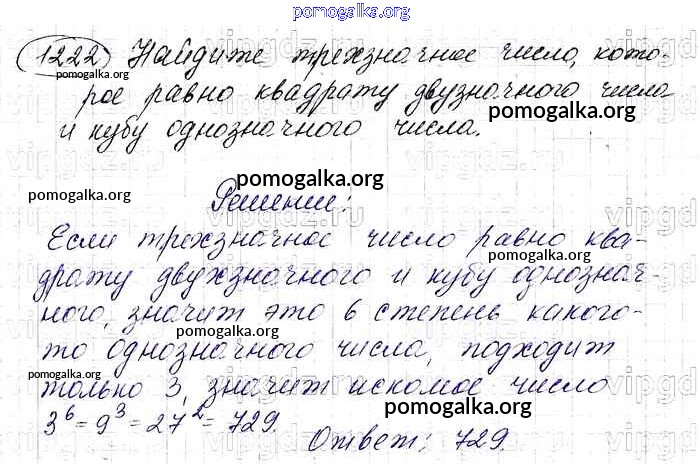 pomogalka.org
1222 Найдите трехзначное число, кото-
pomogalka.org
рое равно квадрату двузначного числа
pomogalka.org
и кубу однозначного числа.
pomogalka.org
pomogalka.org
Решение:
pomogalka.org
Если трехзначное число равно ква-
драту двухзначного и кубу однознач-
ного, значит это 6 степень какого-
pomogalka.org
то однозначного числа, подходит
pomogalka.org
только 3, значит искомое число
pomogalka.org
3^6 = 9^3 = 27^2 = 729.
Ответ: 729.